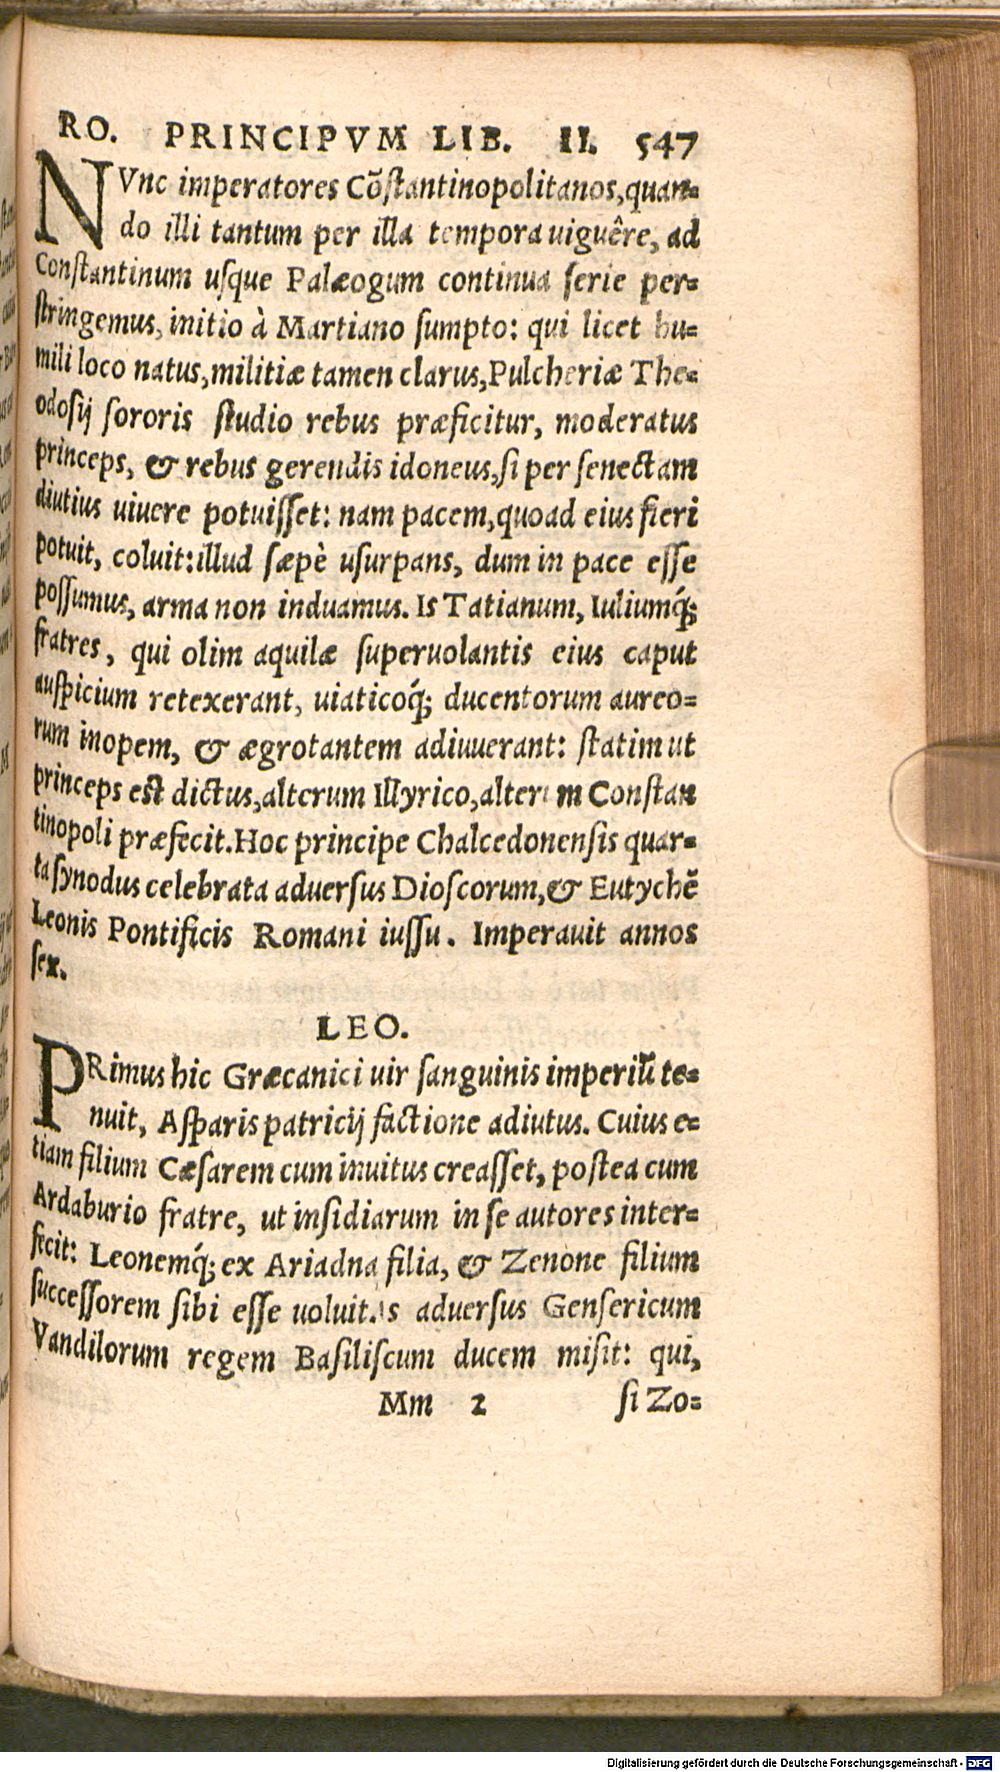 RO. PRINCIPVM LIB. II. 547
NVnc imperatores Cõstantinopolitanos, quan-
do illi tantum per illa tempora uiguêre, ad
Constantinum usque Palæogum continua serie per-
stringemus, initio à Martiano sumpto: qui licet hu-
mili loco natus, militiæ tamen clarus, Pulcheriæ The-
odosij sororis studio rebus præficitur, moderatus
princeps, & rebus gerendis idoneus, si per senectam
diutius uiuere potuisset: nam pacem, quoad eius fieri
potuit, coluit: illud sæpè usurpans, dum in pace esse
possumus, arma non induamus. Is Tatianum, Iuliumq́;
fratres, qui olim aquilæ superuolantis eius caput
auspicium retexerant, uiaticoq́; ducentorum aureo-
rum inopem, & ægrotantem adiuuerant: statim ut
princeps est dictus, alterum Illyrico, alterum Constan
tinopoli præfecit. Hoc principe Chalcedonensis quar-
ta synodus celebrata aduersus Dioscorum, & Eutychẽ
Leonis Pontificis Romani iussu. Imperauit annos
sex.
LEO.
PRimus hic Græcanici uir sanguinis imperiũ te-
nuit, Asparis patricij factione adiutus. Cuius e-
tiam filium Cæsarem cum inuitus creasset, postea cum
Ardaburio fratre, ut insidiarum in se autores inter-
fecit: Leonemq́; ex Ariadna filia, & Zenone filium
successorem sibi esse uoluit. Is aduersus Gensericum
Vandilorum regem Basiliscum ducem misit: qui,
Mm 2 si Zo-
Digitalisierung gefördert durch die Deutsche Forschungsgemeinschaft - DFG